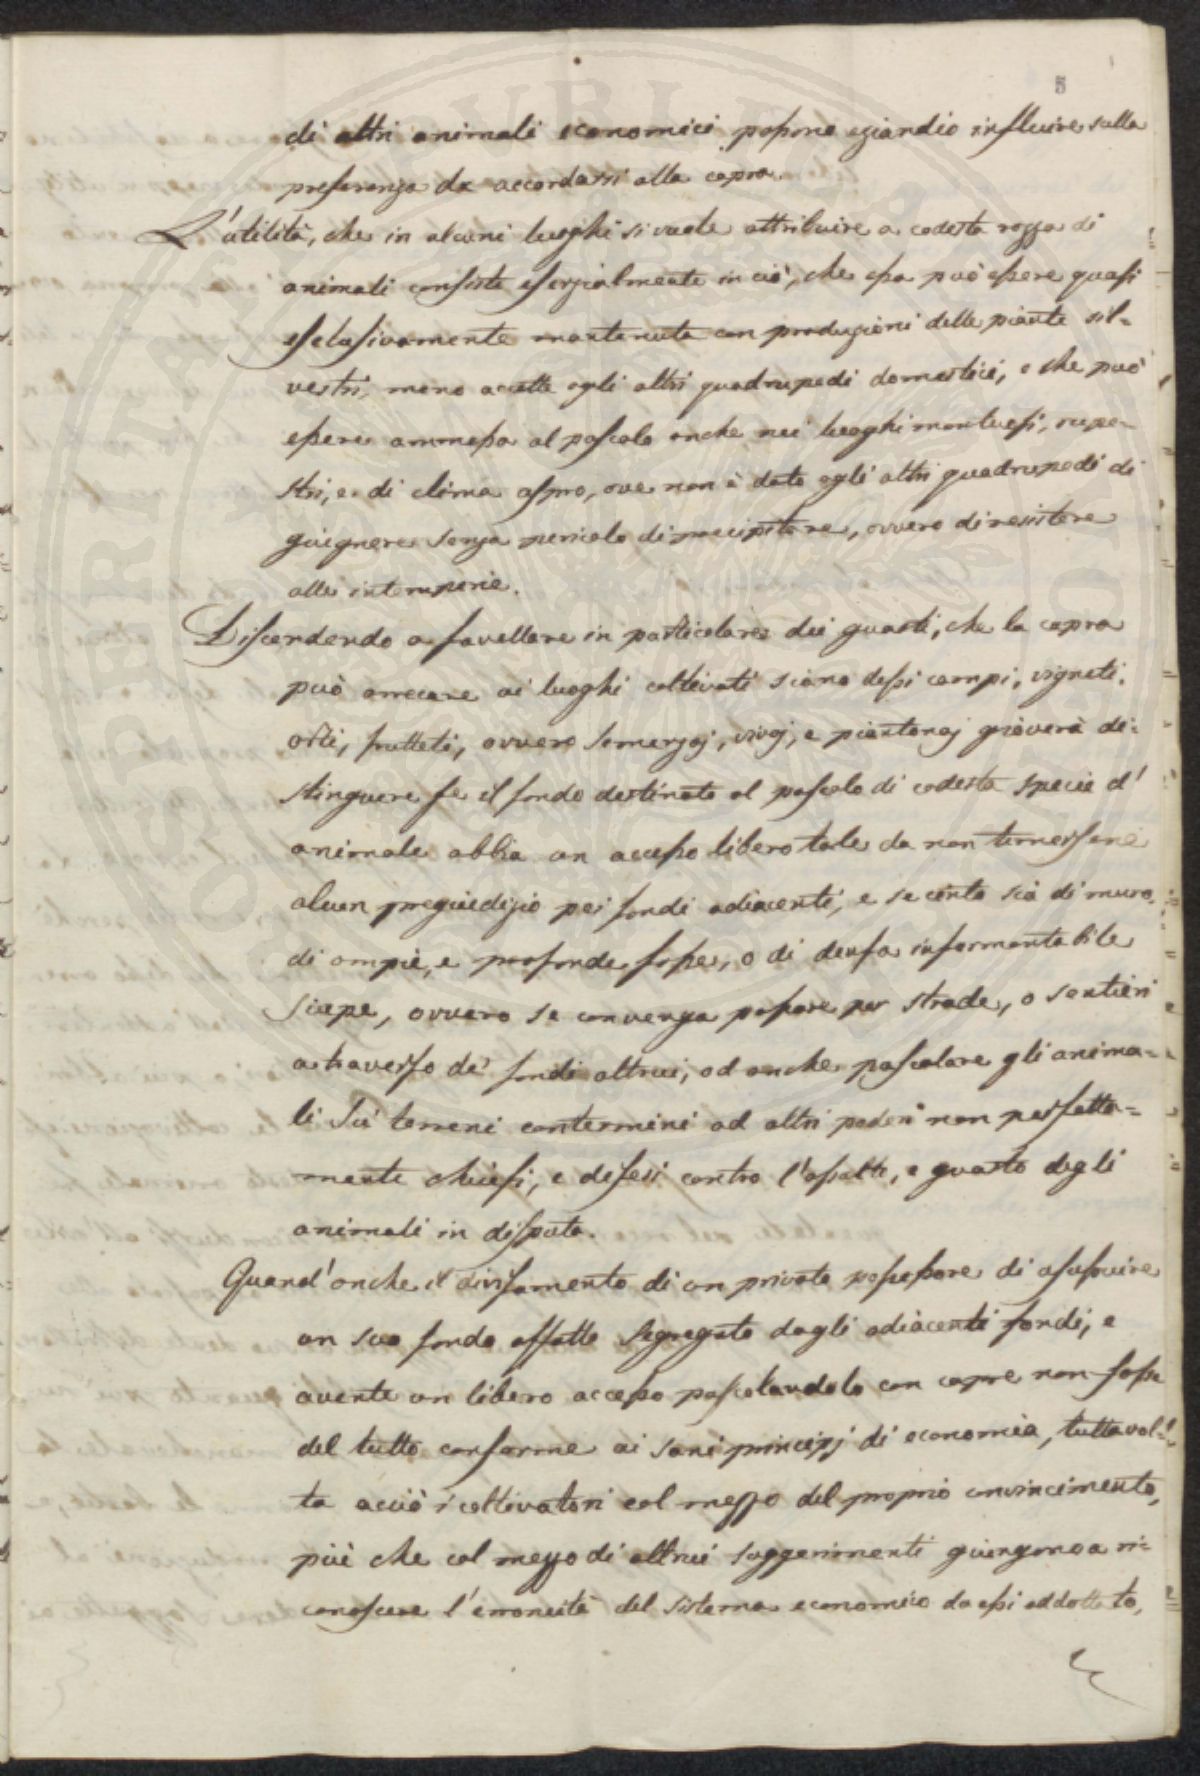 5
di altri animali economici possono eziandio influire sulla
preferenza da accordarsi alla capra.
L'utilità, che in alcuni luoghi si vuole attribuire a codesta razza di
animali consiste essenzialmente in ciò, che essa può essere quasi
esclusivamente mantenuta con produzioni delle piante sil-
vestri, meno accette agli altri quadrupedi domestici, e che può
essere ammessa al pascolo anche nei luoghi montuosi, rupe-
stri, e di clima aspro, ove non è dato agli altri quadrupedi di
giugnere senza pericolo di precipitare, ovvero di resistere
alle intemperie.
Discendendo a favellare in particolare dei guasti, che la capra
può arrecare ai luoghi coltivati siano dessi campi, vigneti,
orti, frutteti, ovvero semenzaj, vivaj, e piantonaj gioverà di-
stinguere se il fondo destinato al pascolo di codesta specie d'
animale abbia un accesso libero tale da non temersene
alcun pregiudizio pei fondi adiacenti, e se cinto sia di muro,
di ampie, e profonde fosse, o di densa informontabile
siepe, ovvero se convenga passare per strade, o sentieri
attraverso de' fondi altrui, od anche pascolare gli anima-
li su' terreni contermini ad altri poderi non perfetta-
mente chiusi, e difesi contro l'assalto, e guasto degli
animali in disputa.
Quand'anche il divisamento di un privato possessore di usufruire
un suo fondo affatto segregato dagli adiacenti fondi, e
avente un libero accesso pascolandolo con capre non fosse
del tutto conforme ai sani principj di economia, tuttavol-
ta acciò i coltivatori col mezzo del proprio convincimento,
più che col mezzo di altrui suggerimenti giungano a ri-
conoscere l'erroneità del sistema economico da essi addottato,